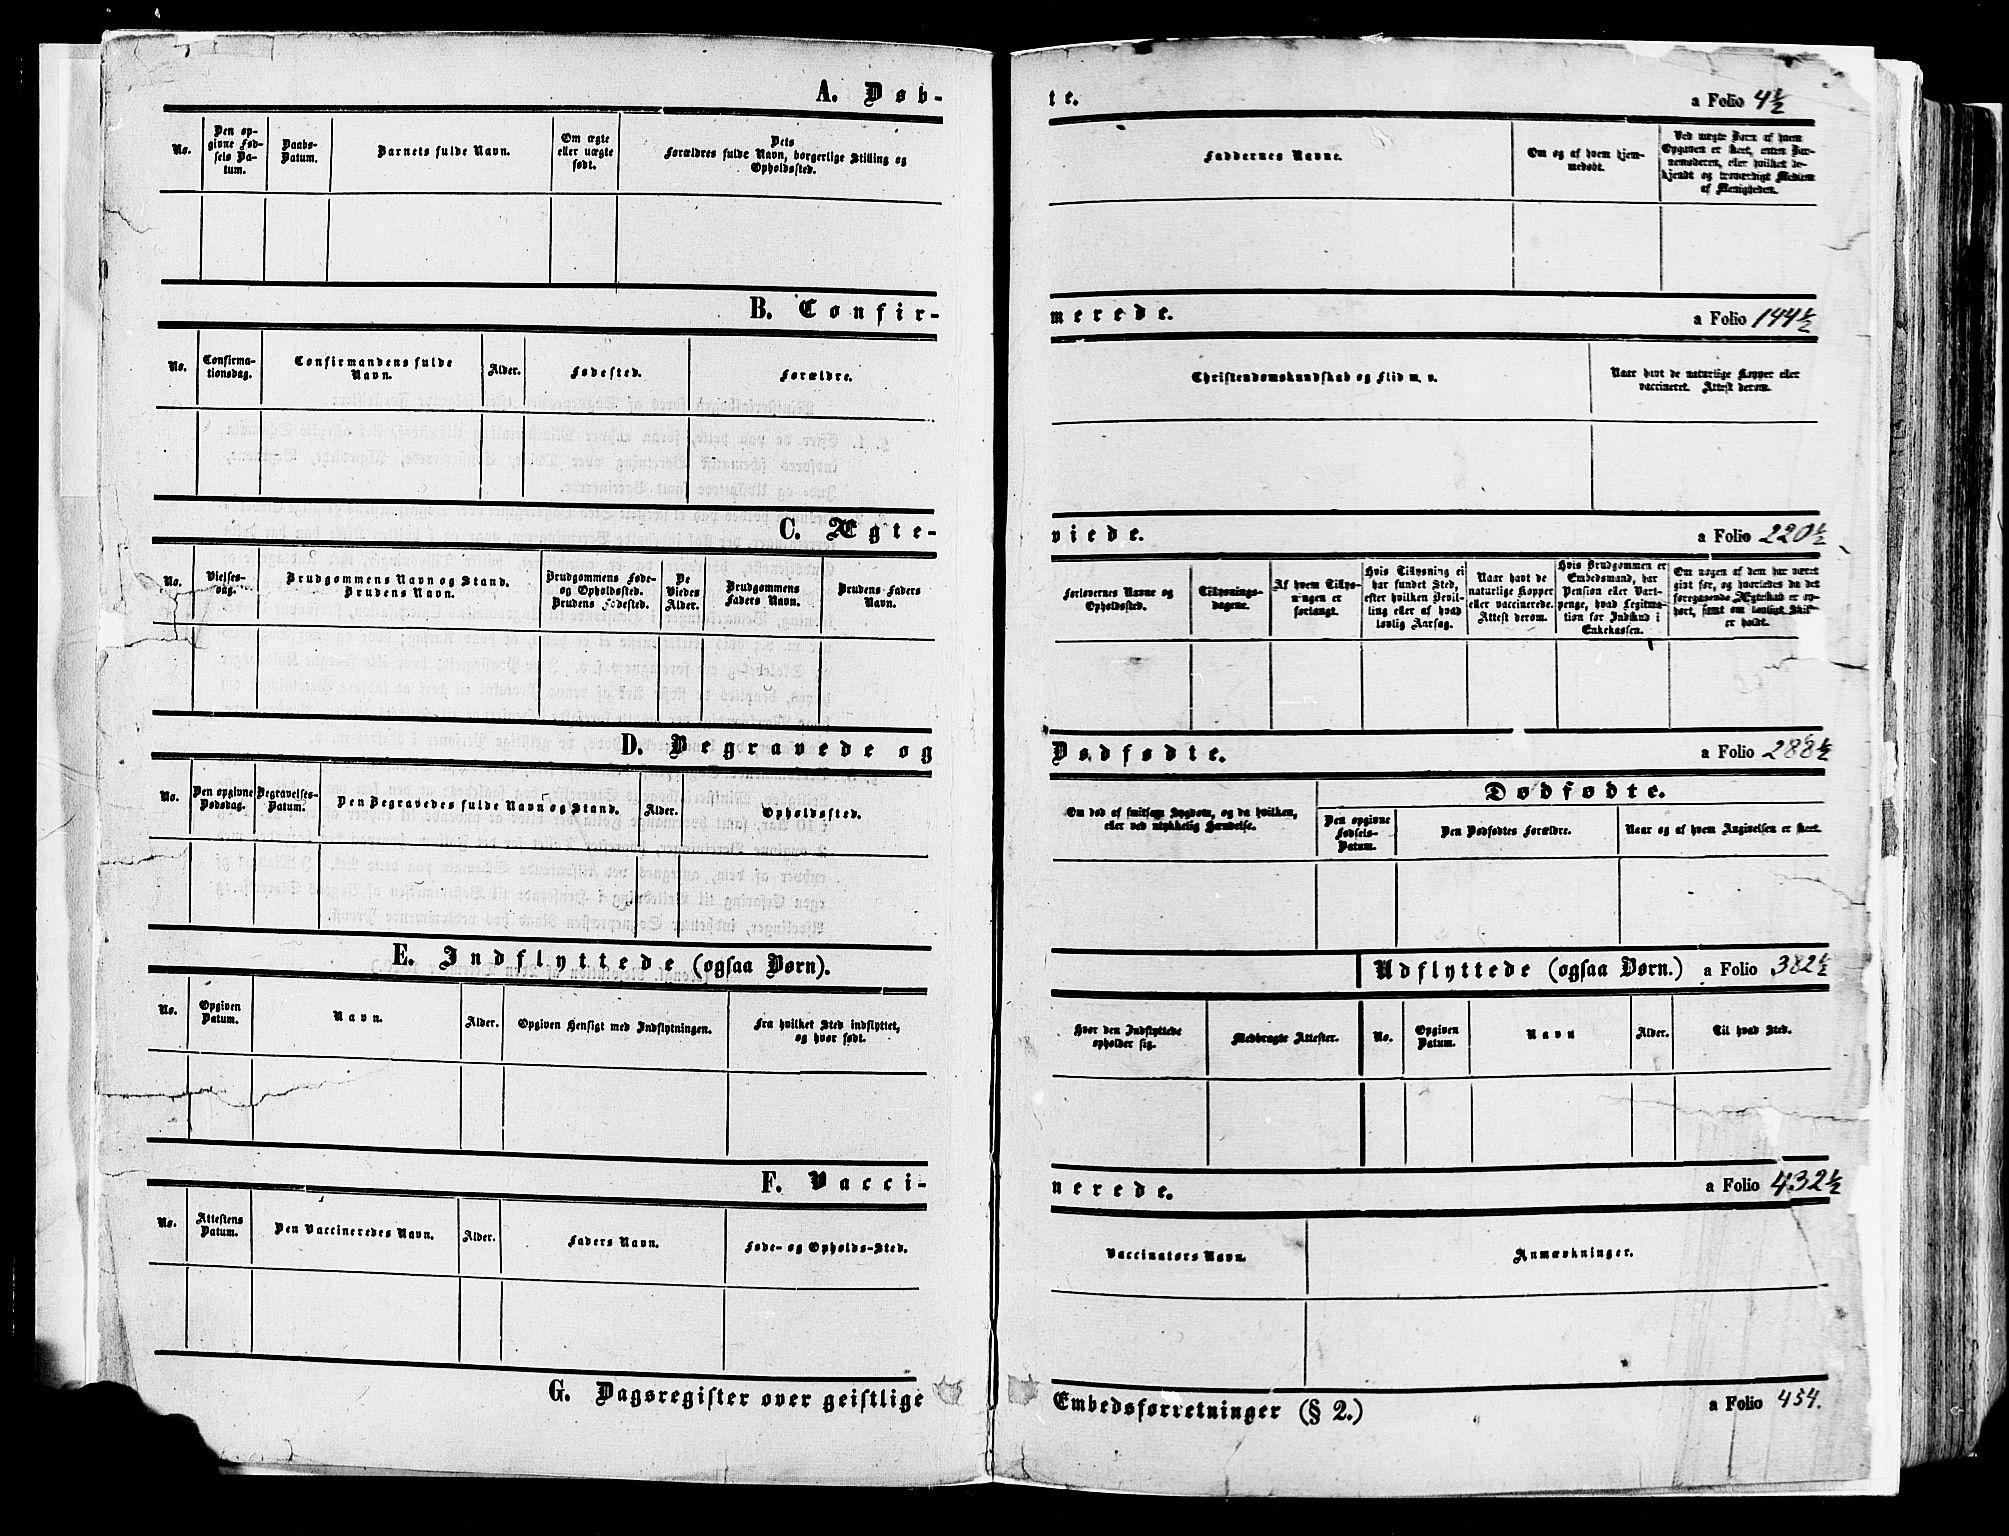 A. Døb-
te.
a Folio 4½
No.
Den op-
givne Fød-
sels Da-
tum.
Daabs-
Datum.
Barnets fulde Navn.
Om ægte
eller uægte
født.
Dets
Forældres fulde Navn, borgerlige Stilling og
Opholdssted.
Faddernes Navne.
Om og af hvem hjem-
medøbt.
Ved uægte Børn af hvem
Opgaven er skeet, enten Bar-
nemoderen, eller hvilket be-
kjendt og troværdigt Medlem
af Menigheden.
B. Confir-
merede.
a Folio 144½
No.
Confirma-
tionsdag.
Confirmandens fulde
Navn.
Alder.
Fødested.
Forældre.
Christendomskundskab og Flid m. v.
Naar havt de naturlige Kopper eller
vaccineret. Attest derom.
C. Ægte-
viede.
a Folio 220½
No.
Vielses-
dag.
Brudgommens Navn og Stand.
Brudens Navn.
Brudgommens Føde-
og Opholdssted.
Brudens Fødested.
De
Viedes
Alder.
Brudgommens
Faders Navn.
Brudens Faders
Navn.
Forlovernes Navne og
Opholdssted.
Tillysnings-
dagene.
Af hvem Tillys-
ningen er
forlangt.
Hvis Tillysning ei
har fundet Sted,
efter hvilken Bevil-
ling eller af hvad
lovlig Aarsag.
Naar havt de
naturlige Kopper
eller vaccinerede.
Attest derom.
Hvis Brudgommen er
Embedsmand, har
Pension eller Vart-
penge, hvad Legitima-
tion for Indskud i
Enkekassen.
Om nogen af dem har været
gift før, og hvorledes da det
foregaaende Ægteskab er op-
hørt, samt om lovligt Skif-
te er holdt.
D. Begravede og
Dødfødte.
a Folio 288½
No.
Den opgivne
Dødsdag.
Begravelses-
Datum.
Den Begravedes fulde Navn og Stand.
Alder.
Opholdssted.
Om død af smitsom Sygdom, og da hvilken,
eller ved ulykkelig Hændelse.
Dødfødte.
Den opgivne
Fødsels-
Datum.
Den Dødfødtes Forældre.
Naar og af hvem Angivelsen er skeet.
E. Indflyttede (ogsaa Børn).
Udflyttede (ogsaa Børn.)
a Folio 382½
No.
Opgiven
Datum.
Navn.
Alder.
Opgiven Hensigt med Indflytningen.
Fra hvilket Sted indflyttet,
og hvor født.
Hvor den Indflyttede
opholder sig.
Medbragte Attester.
No.
Opgiven
Datum.
Navn
Alder.
Til hvad Sted.
F. Vacci-
nerede.
a Folio 432½
No.
Attestens
Datum.
Den Vaccineredes Navn.
Alder.
Faders Navn.
Føde- og Opholds-Sted.
Vaccinatørs Navn.
Anmærkninger.
G. Dagsregister over geistlige
Embedsforretninger (§ 2.)
a Folio 454.